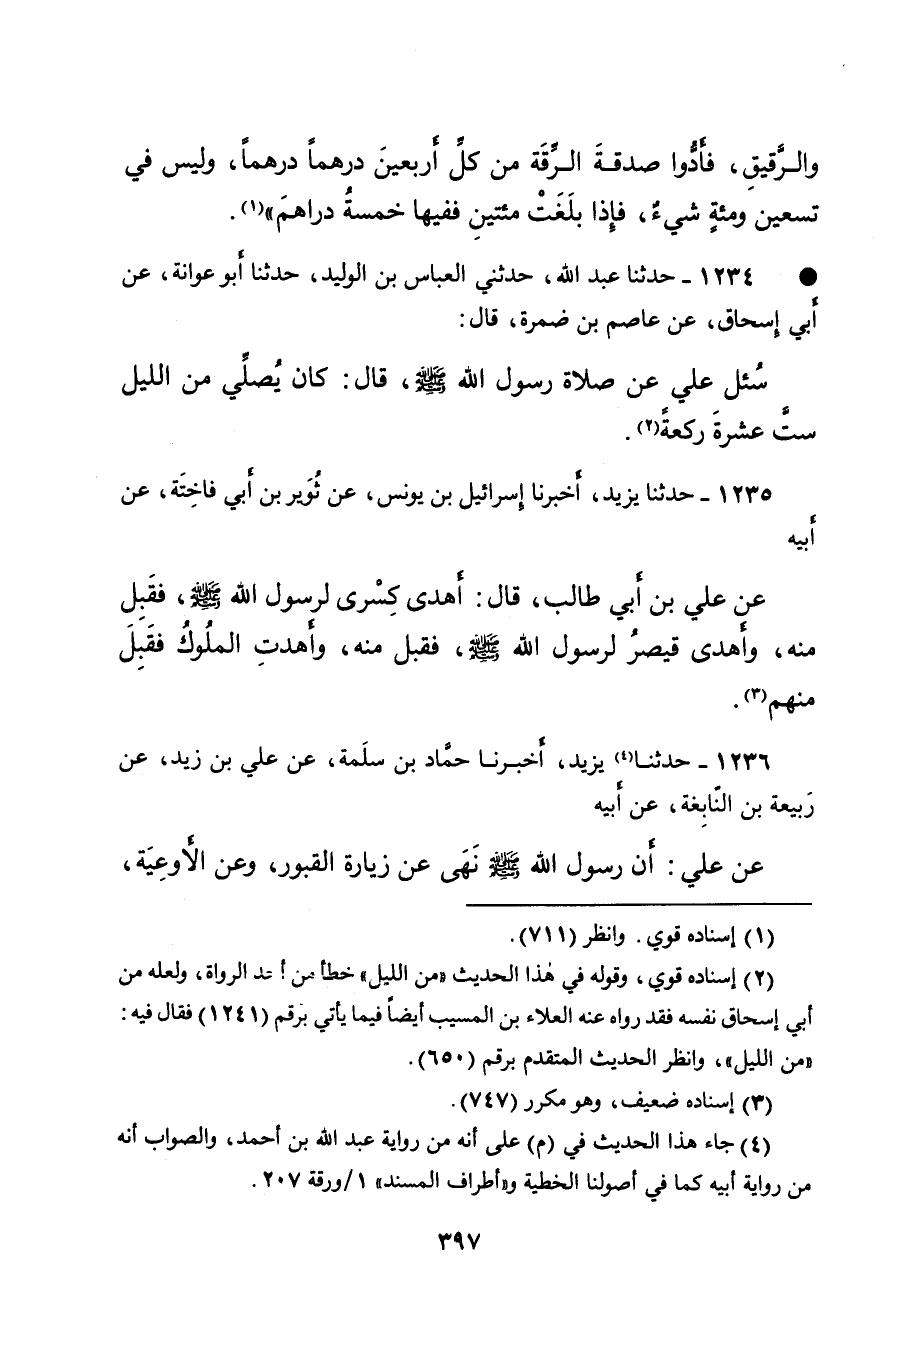 والـرَّقيقِ، فأَدُّوا صدقـةَ الـرِّقَة من كلِّ أَربعينَ درهماً درهماً، وليس في
تسعين ومئةٍ شيءٌ، فإِذا بلَغَتْ مئتينِ ففيها خمسةُ دراهمَ»(١).
● ١٢٣٤ ـ حدثنا عبد الله، حدثني العباس بن الوليد، حدثنا أَبو عوانة، عن
أَبي إِسحاق، عن عاصم بن ضمرة، قال:
سُئل علي عن صلاة رسول الله ﷺ، قال: كان يُصلِّي من الليل
ستَّ عشرةَ ركعةً(٢).
١٢٣٥ ـ حدثنا يزيد، أَخبرنا إِسرائيل بن يونس، عن ثُوَير بن أَبي فاخِتَة، عن
أَبيه
عن علي بن أَبي طالب، قال: أَهدى كِسْرى لرسول الله ﷺ، فقَبِل
منه، وأَهدى قيصرُ لرسول الله ﷺ، فقبل منه، وأَهدتِ الملُوكُ فقَبِلَ
منهم(٣).
١٢٣٦ ـ حدثنـا(٤) يزيد، أَخبـرنـا حمَّاد بن سلَمة، عن علي بن زيد، عن
رَبيعة بن النَّابِغة، عن أَبيه
عن علي: أَن رسول الله ﷺ نَهَى عن زيارة القبور، وعن الأَوعِيَة،
(١) إسناده قوي. وانظر (٧١١).
(٢) إسناده قوي، وقوله في هٰذا الحديث «من الليل» خطأ من الرواة، ولعله من
أبي إسحاق نفسه فقد رواه عنه العلاء بن المسيب أيضاً فيما يأتي برقم (١٢٤١) فقال فيه:
«من الليل»، وانظر الحديث المتقدم برقم (٦٥٠).
(٣) إسناده ضعيف، وهو مكرر (٧٤٧).
(٤) جاء هذا الحديث في (م) على أنه من رواية عبد الله بن أحمد، والصواب أنه
من رواية أبيه كما في أصولنا الخطية و«أطراف المسند» ١/ورقة ٢٠٧.
٣٩٧